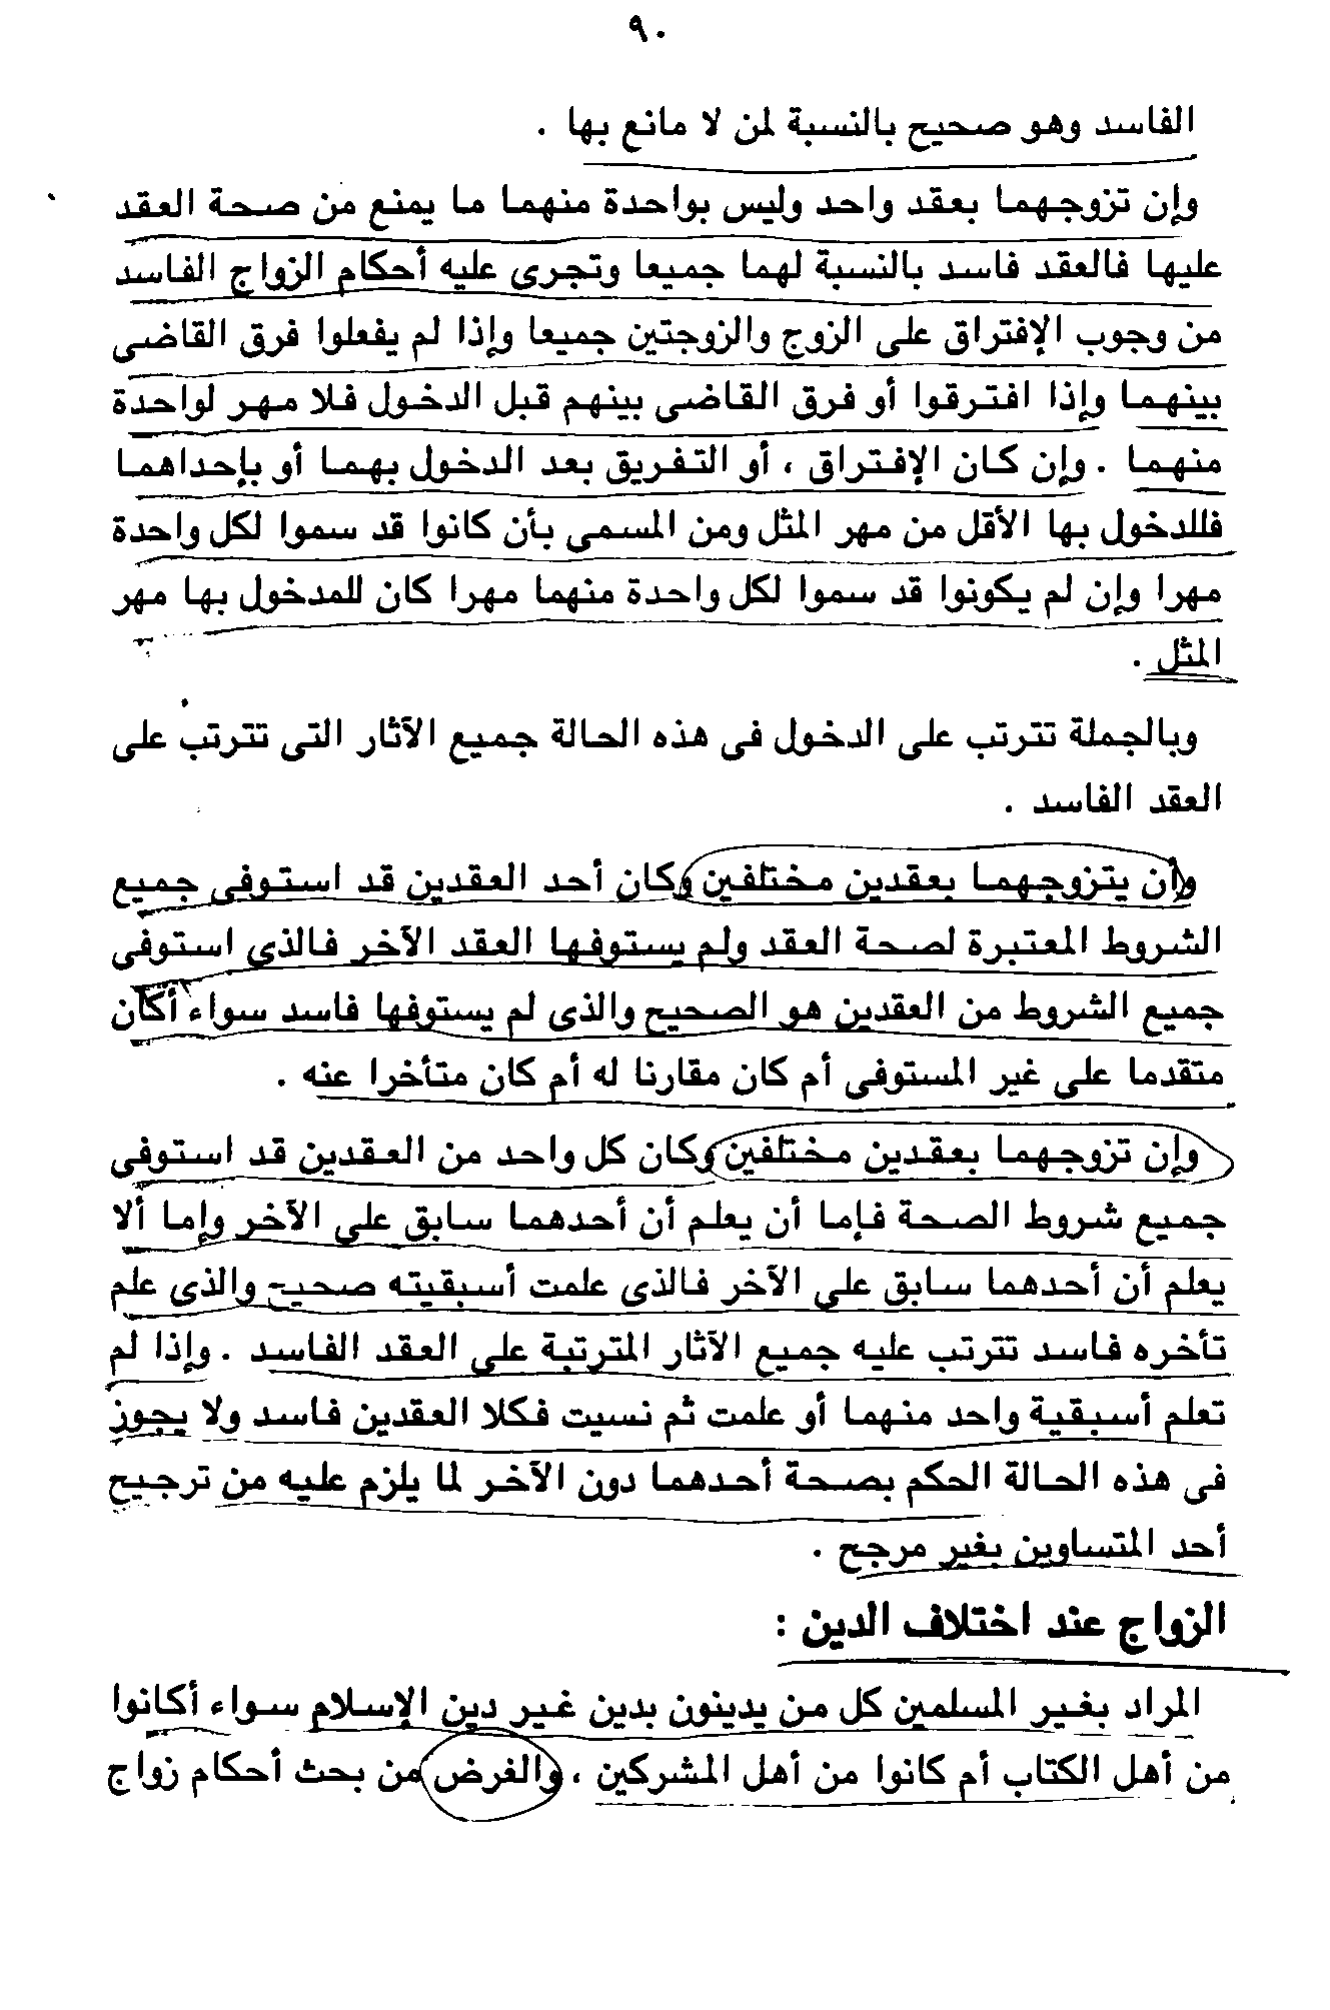 ٩٠
الفاسد وهو صحيح بالنسبة لمن لا مانع بها .
وإن تزوجهما بعقد واحد وليس بواحدة منهما ما يمنع من صحة العقد
عليها فالعقد فاسد بالنسبة لهما جميعا وتجرى عليه أحكام الزواج الفاسد
من وجوب الإفتراق على الزوج والزوجتين جميعا وإذا لم يفعلوا فرق القاضى
بينهما وإذا افترقوا أو فرق القاضى بينهم قبل الدخول فلا مهر لواحدة
منهما . وإن كان الإفتراق ، أو التفريق بعد الدخول بهما أو بإحداهما
فللدخول بها الأقل من مهر المثل ومن المسمى بأن كانوا قد سموا لكل واحدة
مهرا وإن لم يكونوا قد سموا لكل واحدة منهما مهرا كان للمدخول بها مهر
المثل .
وبالجملة تترتب على الدخول فى هذه الحالة جميع الآثار التى تترتب على
العقد الفاسد .
وأن يتزوجهما بعقدين مختلفين وكان أحد العقدين قد استوفى جميع
الشروط المعتبرة لصحة العقد ولم يستوفها العقد الآخر فالذى استوفى
جميع الشروط من العقدين هو الصحيح والذى لم يستوفها فاسد سواء أكان
متقدما على غير المستوفى أم كان مقارنا له أم كان متأخرا عنه .
وإن تزوجهما بعقدين مختلفين وكان كل واحد من العقدين قد استوفى
جميع شروط الصحة فإما أن يعلم أن أحدهما سابق على الآخر وإما ألا
يعلم أن أحدهما سابق على الآخر فالذى علمت أسبقيته صحيح والذى علم
تأخره فاسد تترتب عليه جميع الآثار المترتبة على العقد الفاسد . وإذا لم
تعلم أسبقية واحد منهما أو علمت ثم نسيت فكلا العقدين فاسد ولا يجوز
فى هذه الحالة الحكم بصحة أحدهما دون الآخر لما يلزم عليه من ترجيح
أحد المتساوين بغير مرجح .
الزواج عند اختلاف الدين :
المراد بغير المسلمين كل من يدينون بدين غير دين الإسلام سواء أكانوا
من أهل الكتاب أم كانوا من أهل المشركين ، والغرض من بحث أحكام زواج